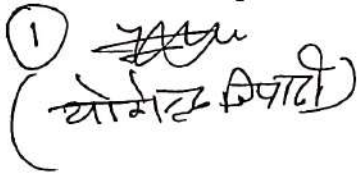 ①
(योगेन्द्र त्रिपाठी)